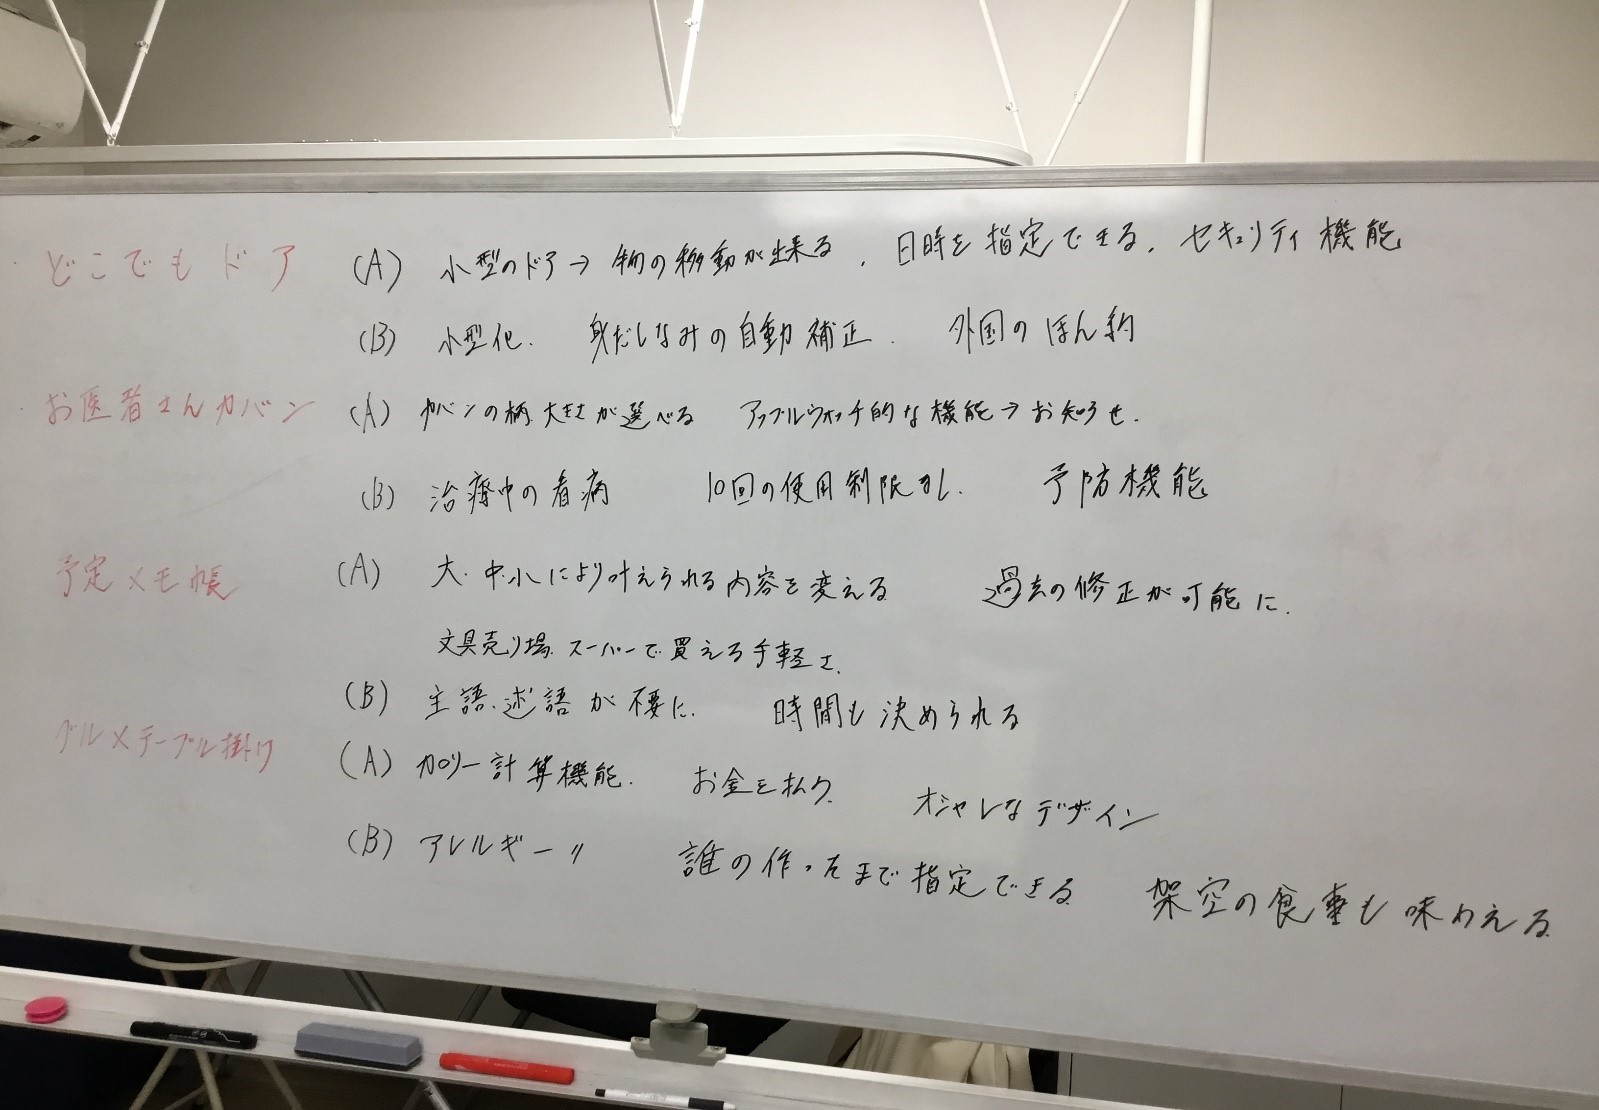 どこでもドア (A) 小型のドア→物の移動が出来る. 日時を指定できる. セキュリティ機能
(B) 小型化. 身だしなみの自動補正. 外国のほん約
お医者さんカバン (A) カバンの柄.大きさが選べる アップルウォッチ的な機能→お知らせ.
(B) 治療中の看病 10回の使用制限なし. 予防機能
予定メモ帳 (A) 大.中.小により叶えられる内容を変える 過去の修正が可能に.
文具売り場.スーパーで買える手軽さ.
(B) 主語.述語が不要に. 時間も決められる
グルメテーブル掛け (A) カロリー計算機能. お金を払う. オシャレなデザイン
(B) アレルギー〃 誰の作ったまで指定できる 架空の食事も味わえる